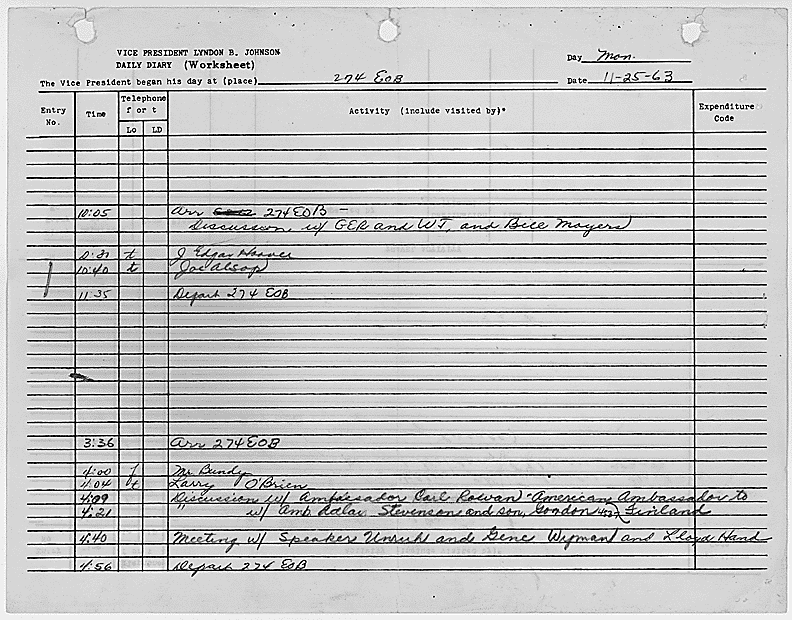 VICE PRESIDENT LYNDON B. JOHNSON
DAILY DIARY (Worksheet)
Day Mon.
The Vice President began his day at (place) 274 EOB
Date 11-25-63
Entry No. Time Telephone f or t Lo LD Activity (include visited by)* Expenditure Code
10:05 Arr 274 EOB –
Discussion w/ GER and WJ, and Bill Moyers
t J Edgar Hoover
10:40 t Joe Alsop
11:35 Depart 274 EOB
3:36 Arr 274 EOB
4:00 f Mr Bundy
4:04 t Larry O'Brien
4:09 Discussion w/ Ambassador Carl Rowan - American Ambassador to
4:21 " w/ Amb Adlai Stevenson and son, Finland
4:40 Meeting w/ Speaker Unruh and Gene Wyman and Lloyd Hand
4:56 Depart 274 EOB